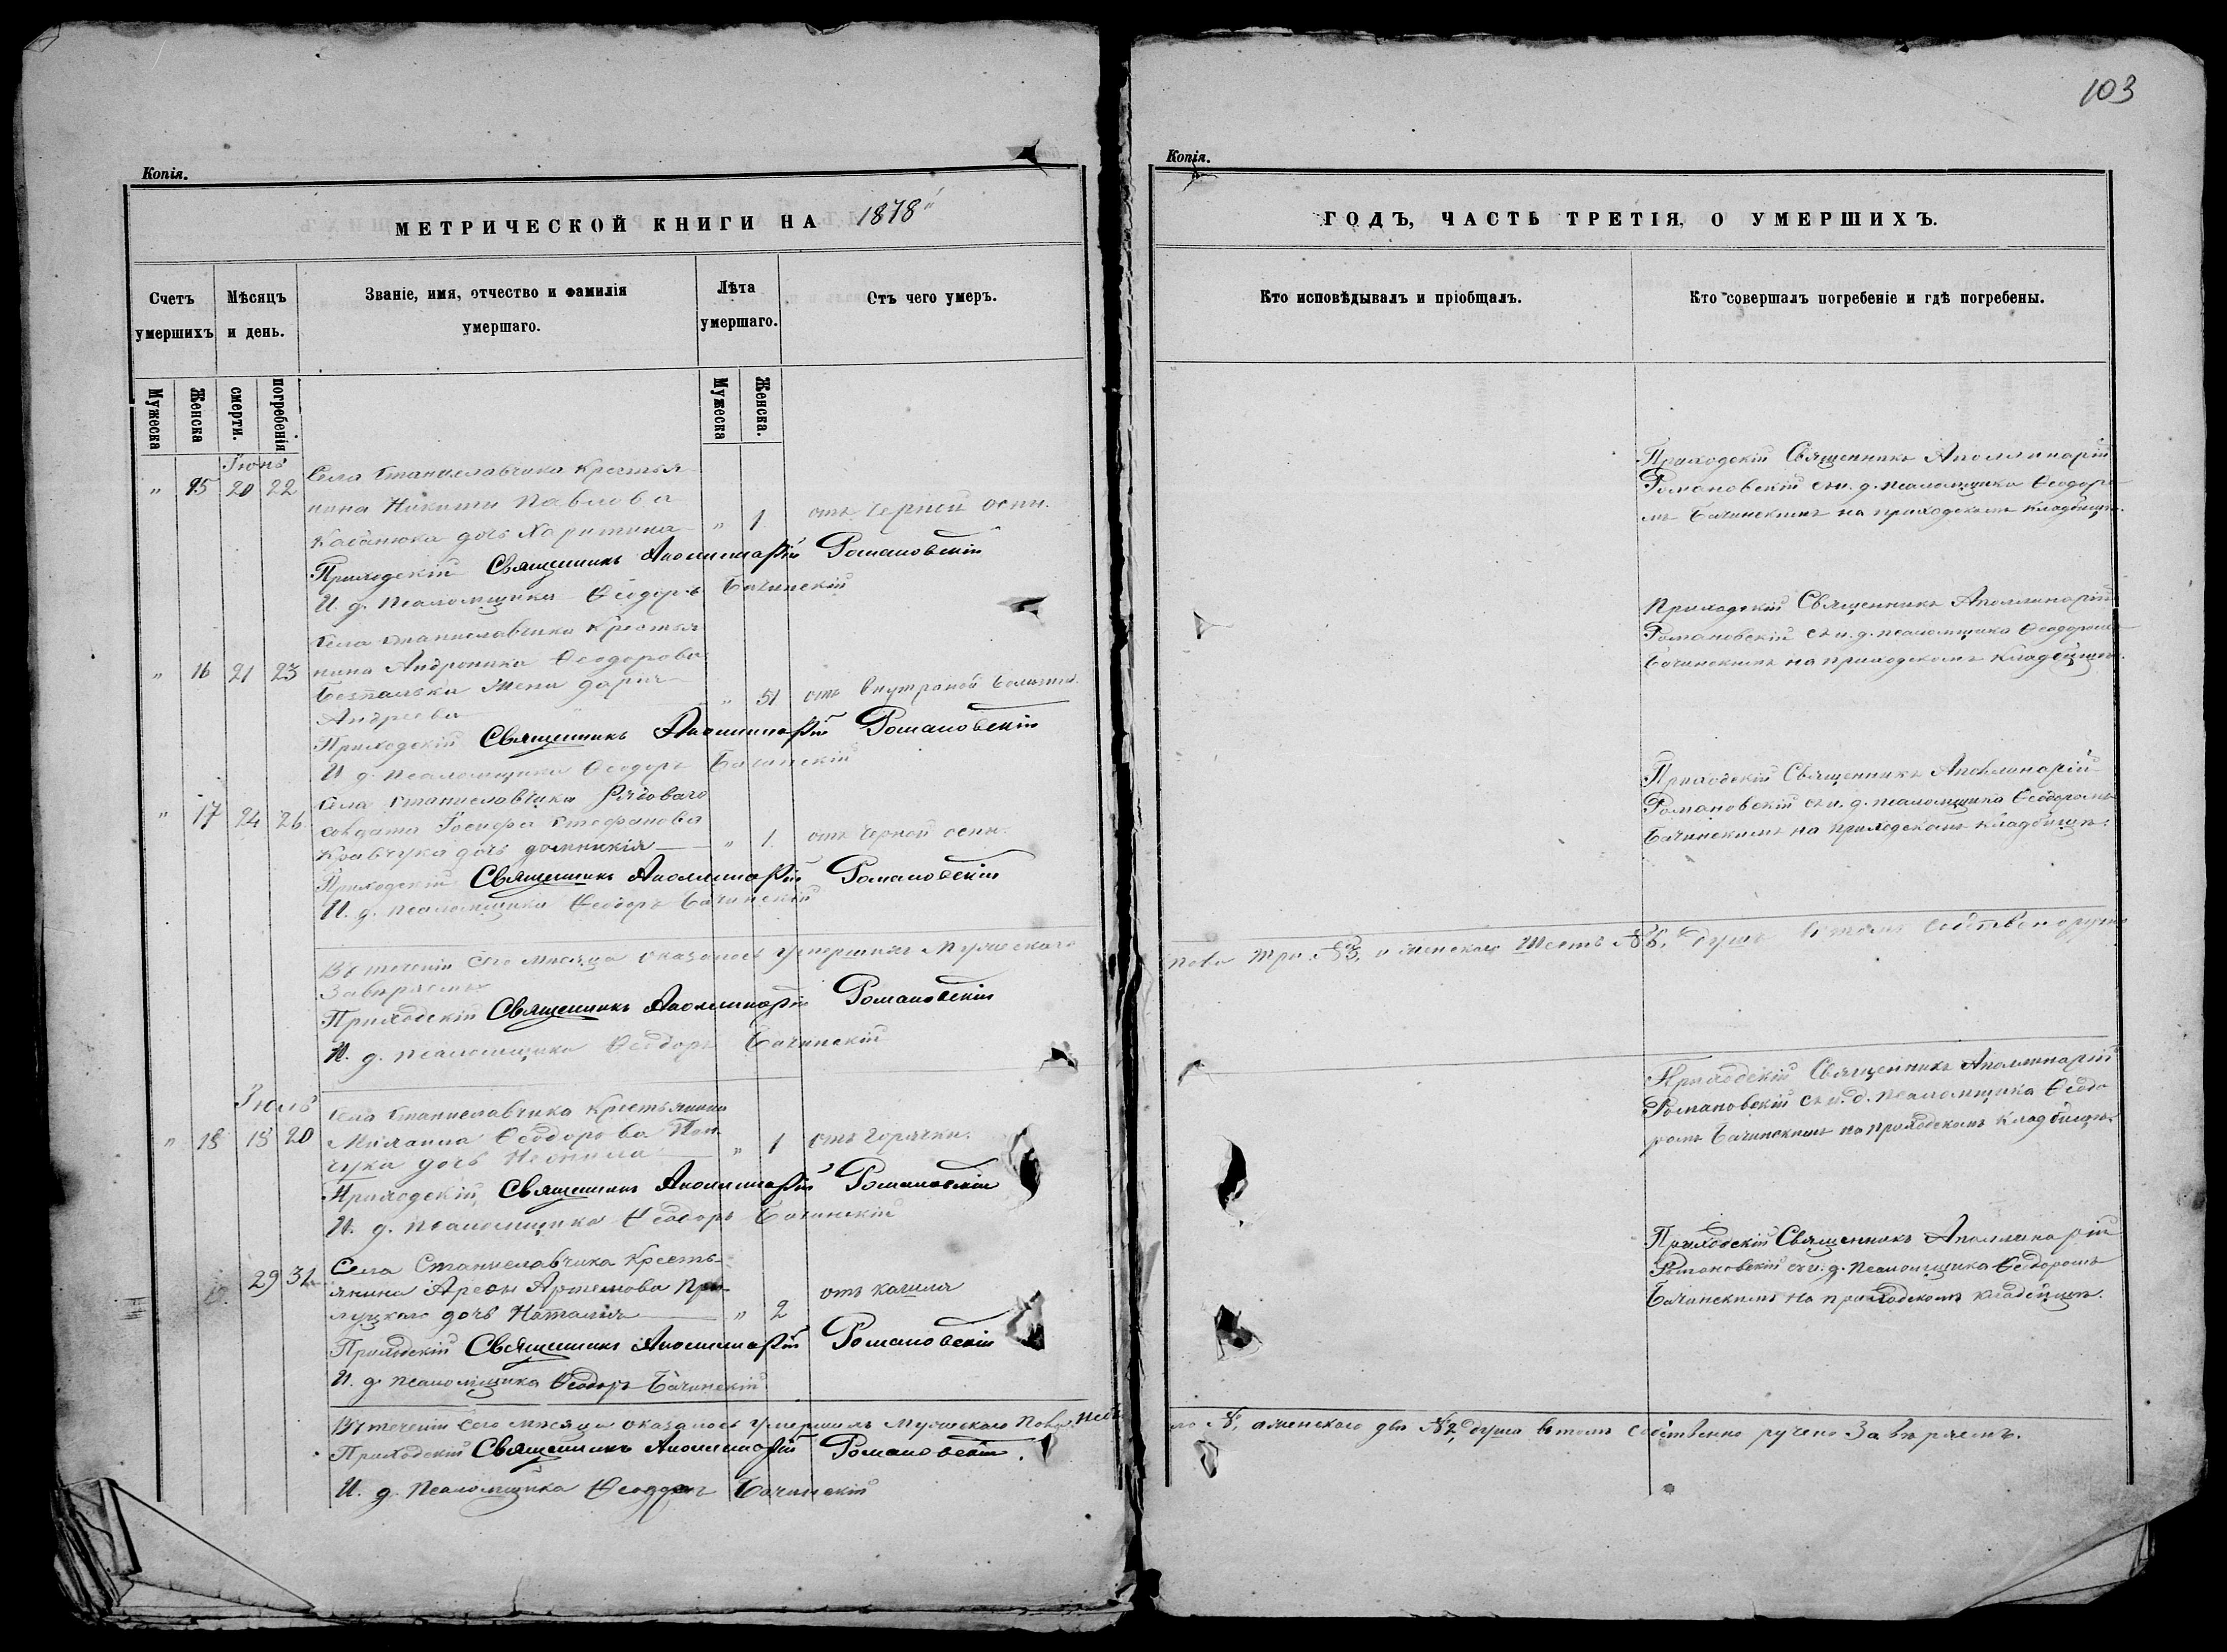 103
Копія.
МЕТРИЧЕСКОЙ КНИГИ НА 1878
Счетъ умершихъ
Мѣсяцъ и день.
Званіе, имя, отчество и фамилія умершаго.
Лѣта умершаго.
Отъ чего умеръ.
Мужеска
Женска
смерти.
погребенія
Мужеска
Женска.
Іюнь
Села Станиславчика Крестья-
" 15 20 22
нина Никиты Павлова
дочь Харитина " 1 отъ черной оспы.
Приходскій Священникъ Аполлинарій Романовскій
И. д. псаломщика Ѳеодоръ Бачинскій
Села Станиславчика Крестья
" 16 21 23 нина Андроника Ѳеодорова
Безпалька жена Дарія " 51 отъ внутраной болѣзни.
Андреева
Приходскій Священникъ Аполлинарій Романовскій
И д. псаломщика Ѳеодоръ Бачинскій
" 17 24 26 Села Станиславчика Рядоваго
солдата Іосифа Стефанова
Кравчука дочь Домникія " 1. отъ черной оспы.
Приходскій Священникъ Аполлинарій Романовскій
И. д. псаломщика Ѳеодоръ Бачинскій
Въ теченіи сего мѣсяца оказалось умершихъ Мужескаго
Завѣряемъ
Приходскій Священникъ Аполлинарій Романовскій
И. д. псаломщика Ѳеодоръ Бачинскій
Іюль
Села Станиславчика Крестьянина
" 18 18 20 Ѳеодорова
дочь " 1 отъ горячки.
Приходскій Священникъ Аполлинарій Романовскій
И. д. псаломщика Ѳеодоръ Бачинскій
29 31 Села Станиславчика Кресть-
янина Арефы Артемова При-
луцкаго дочь Наталія " 2 отъ кашля
Приходскій Священникъ Аполлинарій Романовскій
И. д. псаломщика Ѳеодоръ Бачинскій
Въ теченіи сего мѣсяца оказалось умершихъ Мужескаго пола
Приходскій Священникъ Аполлинарій Романовскій.
И. д. псаломщика Ѳеодоръ Бачинскій
Копія.
ГОДЪ, ЧАСТЬ ТРЕТІЯ, О УМЕРШИХЪ.
Кто исповѣдывалъ и пріобщалъ.
Кто совершалъ погребеніе и гдѣ погребены.
Приходскій Священникъ Аполлинарій
Романовскій съ и. д. псаломщика Ѳеодоро
мъ Бачинскимъ на приходскомъ кладбищѣ.
Приходскій Священникъ Аполлинарій
Романовскій съ и. д. псаломщика Ѳеодоромъ
Бачинскимъ на приходскомъ кладбищѣ.
Приходскій Священникъ Аполлинарій
Романовскій съ и. д. псаломщика Ѳеодоромъ
Бачинскимъ на приходскомъ кладбищѣ.
пола три №3, а женскаго шесть №6, душъ въ томъ собственоручно
Приходскій Священникъ Аполлинарій
Романовскій съ и. д. псаломщика Ѳеодо
ромъ Бачинскимъ на приходскомъ кладбищѣ.
Приходскій Священникъ Аполлинарій
Романовскій съ и. д. псаломщика Ѳеодоромъ
Бачинскимъ на приходскомъ кладбищѣ.
№, а женскаго двѣ №2, душа въ томъ собственно ручно Завѣряемъ.